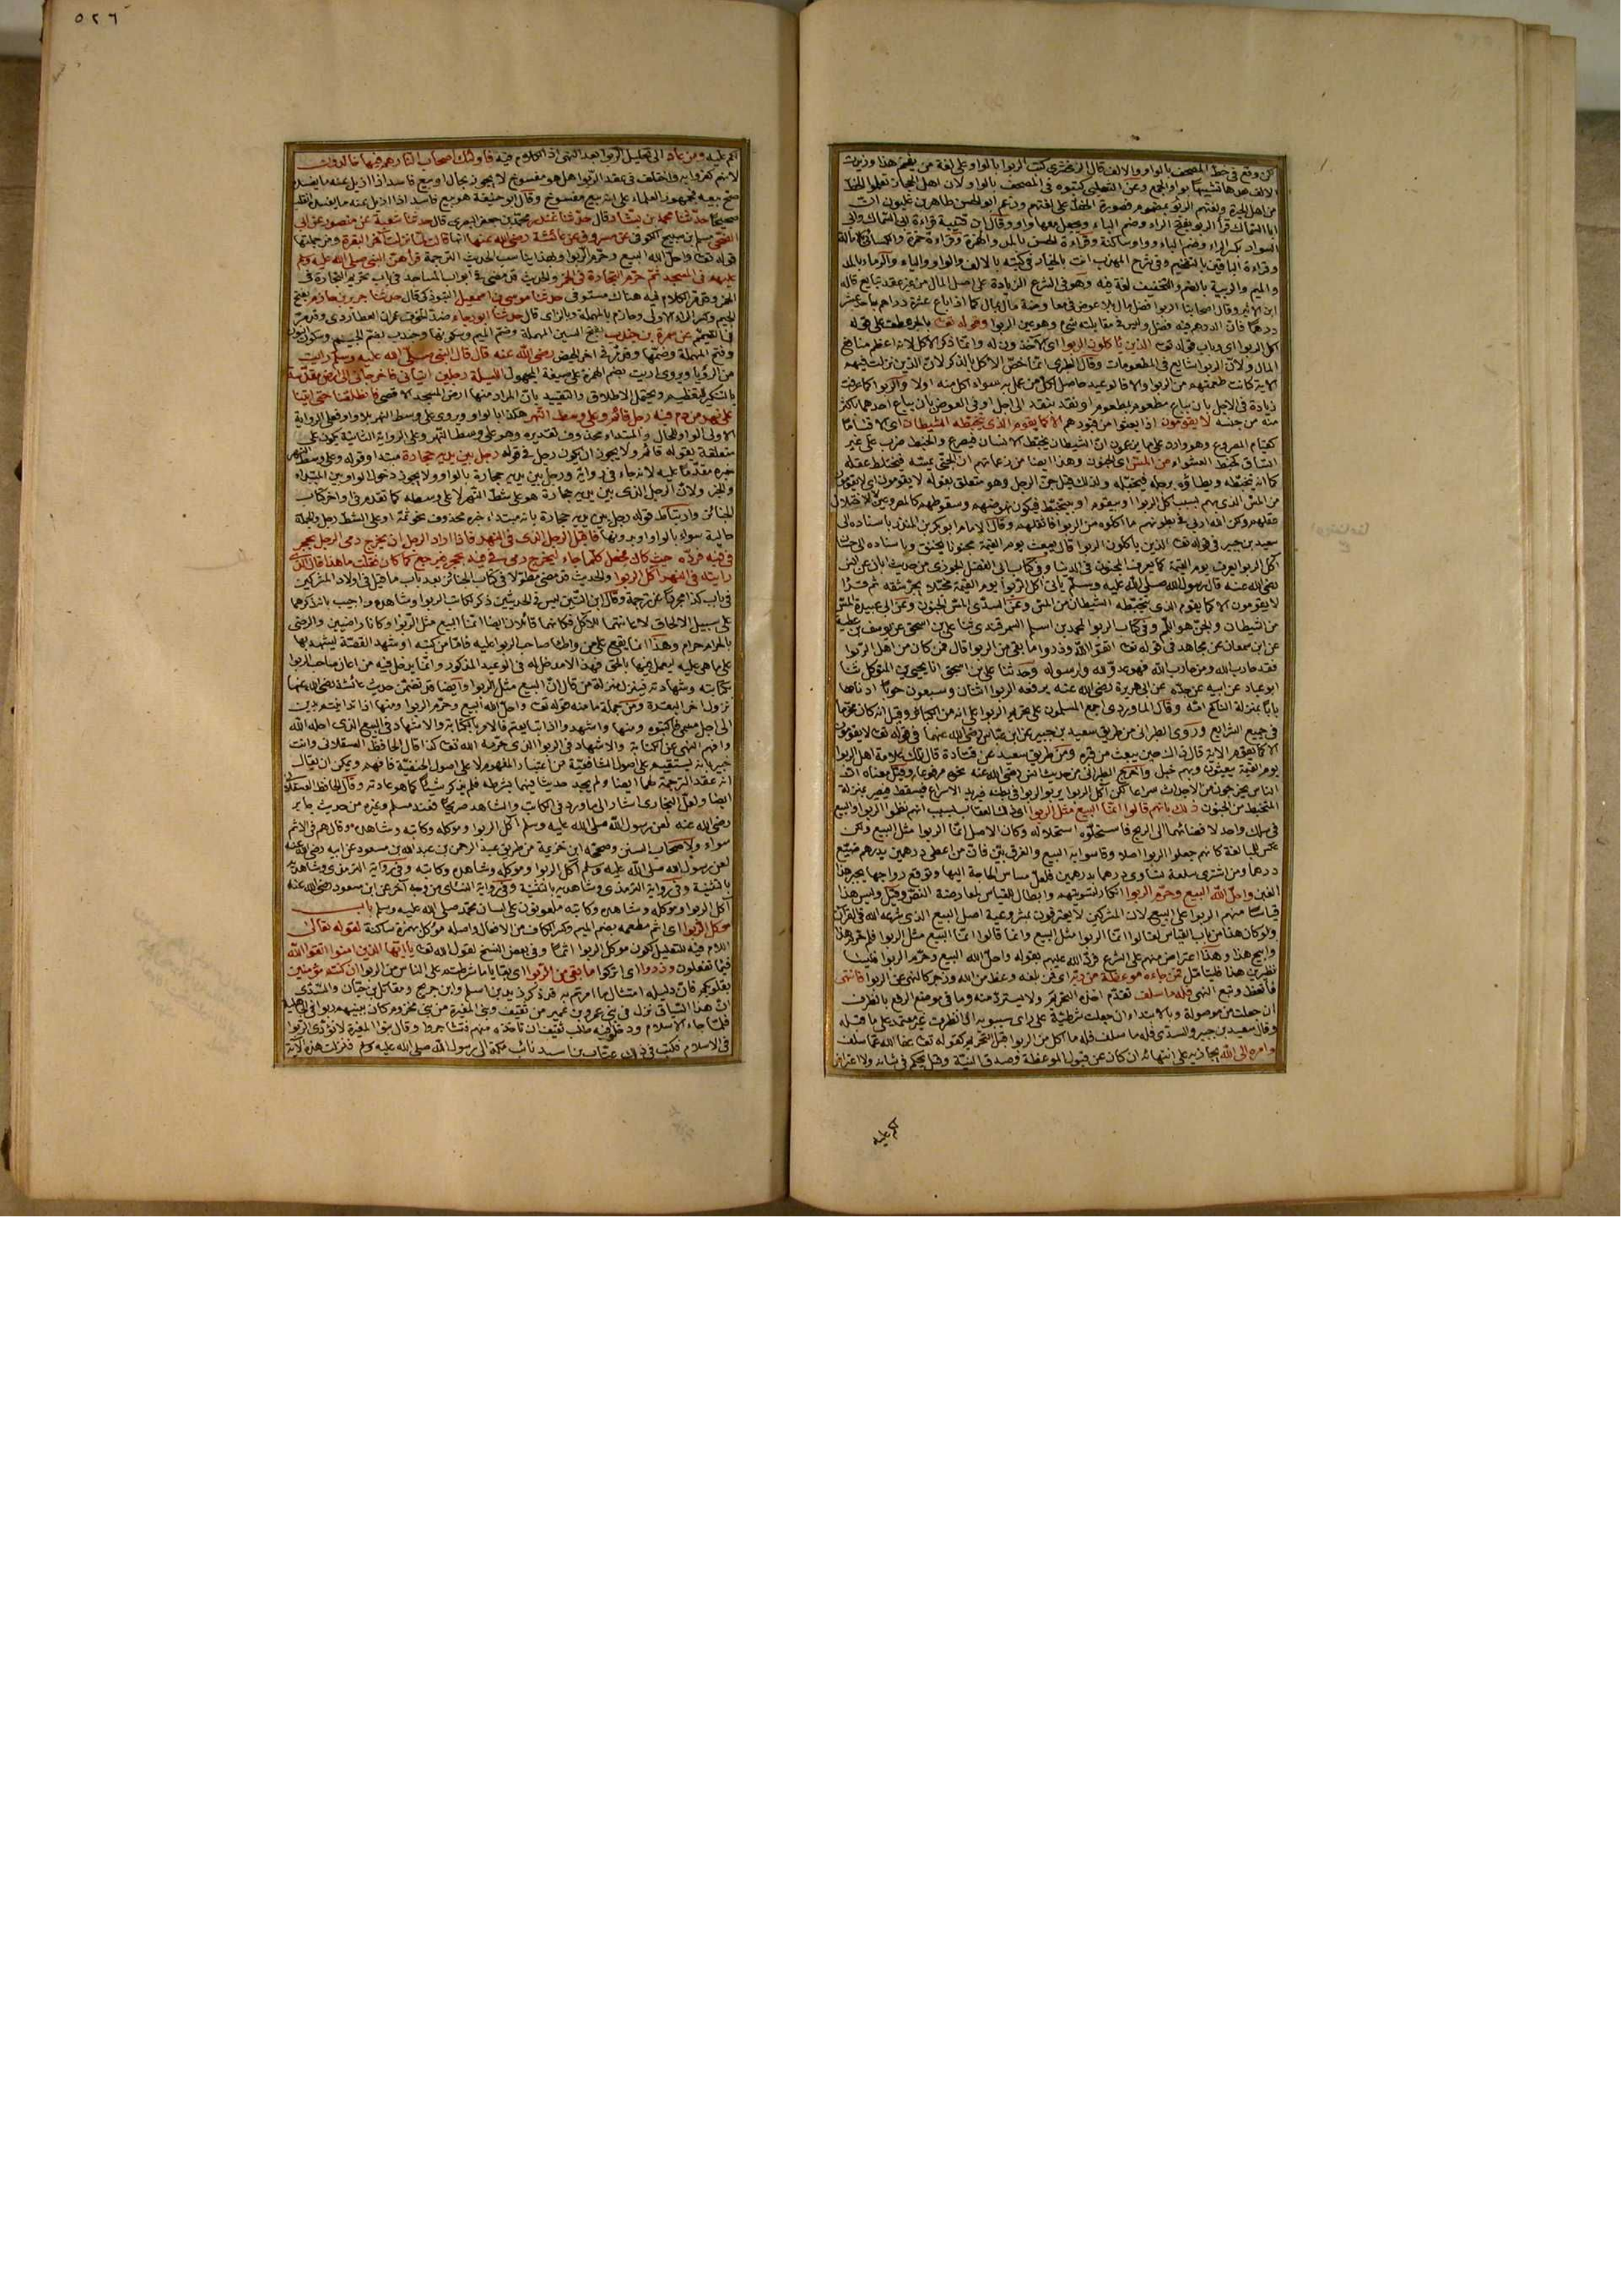 لكن وقع في خط المصحف بالواو والالف قال الزمخشري كتب الربوا بالواو على لغة من يفخم هذا وزيدت
الالف بعدها تشبيها بواو الجمع وعن الثعلبي كتبوه في المصحف بالواو ولان اهل الحجاز تعلموا الخط
من اهل الحيرة ولغتهم الربو فصورة الخط على لغتهم وزعم ابو الحسن طاهر بن غلبون ان
ابا السماك قرأ الربو بفتح الراء وضم الباء ويجعل معها واو وقال ابن قتيبة قراءة ابي السماك وابي
السواد بكسر الراء وضم الباء وواو ساكنة وقراءة الحسن بالمد والهمزة وقراءة حمزة والكسائي بالامالة
وقراءة الباقين بالتفخيم وفي شرح المهذب انت بالخيار في كتبه بالالف والواو والياء والرماء بالمد
والميم والربية بالضم والتخفيف لغة فيه وهو في الشرع الزيادة على اصل المال من غير عقد تبايع قاله
ابن الاثير وقال اصحابنا الربوا فضل مال بلا عوض في معاوضة مال بمال كما اذا باع عشرة دراهم باحد عشر
درهما فان الدرهم فيه فضل وليس في مقابلته شيء وهو عين الربوا وقوله تعـ بالجر عطف على قوله
اكل الربوا اي وباب قوله تعـ الذين ياكلون الربوا اي الآخذون له وانما ذكر الاكل لانه اعظم منافع
المال ولان الربوا شايع في المطعومات وقال الطبري انما خص الاكل بالذكر لان الذين نزلت فيهم
الآية كانت طعمتهم من الربوا والا فالوعيد حاصل لكل من عمل به سواء اكل منه اولا والربوا كما عرفت
زيادة في الاجل بان يباع مطعوم بمطعوم او نقد بنقد الى اجل او في العوض بان يباع احدهما باكثر
منه من جنسه لا يقومون اذا بعثوا من قبورهم الا كما يقوم الذي يتخبطه الشيطان اي الا قياما
كقيام المصروع وهو وارد على ما يزعمون ان الشيطان يخبط الانسان فيصرع والخبط ضرب على غير
اتساق كخبط العشواء من المس اي الجنون وهذا ايضا من زعماتهم ان الجني يمسه فيختلط عقله
كما انه يتخبطه ويطاؤه برجله فيخبله ولذلك قيل جن الرجل وهو متعلق بقوله لا يقومون اي لا يقومون
من المس الذي بهم بسبب اكل الربوا او بيقوم او بيتخبط فيكون نهوضهم وسقوطهم كالمصروعين لا لاختلال
عقلهم ولكن الله اربى في بطونهم ما اكلوه من الربوا فاثقلهم وقال الامام ابو بكر بن المنذر باسناده الى
سعيد بن جبير في قوله تعـ الذين ياكلون الربوا قال يبعث يوم القيمة مجنونا يخنق وباسناده الى
اكل الربوا يعرف يوم القيمة كما يعرف المجنون في الدنيا وفي كتاب ابي الفضل الجوزي من حديث ابان عن انس
رضي الله عنه قال رسول الله صلى الله عليه وسلم ياتي اكل الربوا يوم القيمة مختبلا يجر شقه ثم قرأ
لا يقومون الا كما يقوم الذي يتخبطه الشيطان من المس وعن السدي المس الجنون وعن ابي عبيدة المس
من الشيطان والجن هو اللمم وفي كتاب الربوا لمحمد بن اسلم السمرقندي ثنا علي بن اسحق عن يوسف بن عطية
عن ابن سمعان عن مجاهد في قوله تعـ اتقوا الله وذروا ما بقي من الربوا قال فمن كان من اهل الربوا
فقد حارب الله ومن حارب الله فهو عدو لله ولرسوله وحدثنا علي بن اسحق انا يحيى بن المتوكل ثنا
ابو عباد عن ابيه عن جده عن ابي هريرة رضي الله عنه يرفعه الربوا اثنان وسبعون حوبا ادناها
بابا بمنزلة الناكح امه وقال الماوردي اجمع المسلمون على تحريم الربوا وعلى انه من الكبائر وقيل انه كان محرما
في جميع الشرايع وروى الطبراني من طريق سعيد بن جبير عن ابن عباس رضي الله عنهما في قوله تعـ لا يقومون
الا كما يقوم الآية قال ذلك حين يبعث من قبره ومن طريق سعيد عن قتادة قال تلك علامة اهل الربوا
يوم القيمة يبعثون وبهم خبل واخرج الطبراني من حديث انس رضي الله عنه نحوه مرفوعا وقيل معناه ان
الناس يخرجون من الاجداث سراعا لكن اكل الربوا يربو الربوا في بطنه فيريد الاسراع فيسقط فيصير بمنزلة
المتخبط من الجنون ذلك بانهم قالوا انما البيع مثل الربوا اي ذلك العقاب بسبب انهم نظموا الربوا والبيع
في سلك واحد لافضائهما الى الربح فاستحلوه استحلاله وكان الاصل انما الربوا مثل البيع ولكن
عكس للمبالغة كانهم جعلوا الربوا اصلا وقاسوا به البيع والفرق بين فان من اعطى درهمين بدرهم ضيع
درهما ومن اشترى سلعة تساوي درهما بدرهمين فلعل مساس الحاجة اليها وتوقع رواجها يجبر هذا
الغبن واحل الله البيع وحرم الربوا انكار لتسويتهم وابطال للقياس لمعارضة النص وقيل وليس هذا
قياسا منهم الربوا على البيع لان المشركين لا يعترفون بمشروعية اصل البيع الذي شرعه الله في القرآن
ولو كان هذا من باب القياس لقالوا انما الربوا مثل البيع وانما قالوا انما البيع مثل الربوا فلم حرم هذا
وابيح هذا وهذا اعتراض منهم على الشرع فرد الله عليهم بقوله واحل الله البيع وحرم الربوا فليسا
نظيرين هذا فليتأمل فمن جاءه موعظة من ربه اي فمن بلغه وعظ من الله وزجر كالنهي عن الربوا فانتهى
فاتعظ وتبع النهي فله ما سلف تقدم اخذه التحريم ولا يسترد منه وما في موضع الرفع بالظرف
ان جعلت من موصولة وبالابتداء ان جعلت شرطية على رأي سيبويه اذ الظرف غير معتمد على ما قبله
وقال سعيد بن جبير والسدي فله ما سلف فله ما اكل من الربوا قبل التحريم كقوله تعـ عفا الله عما سلف
وامره الى الله يجازيه على انتهائه ان كان عن قبول الموعظة وصدق النية وقيل يحكم في شانه ولا اعتراض
لكم عليه
٥٢٦
لكم عليه ومن عاد الى تحليل الربوا بعد النهي اذ الكلام فيه فاولئك اصحاب النار هم فيها خالدون
لانهم كفروا به واختلف في عقد الربوا هل هو مفسوخ لا يجوز بحال او بيع فاسد اذا ازيل عنه ما يفسده
صح بيعه فجمهور العلماء على انه بيع مفسوخ وقال ابو حنيفة هو بيع فاسد اذا ازيل عنه ما يفسده انقلب
صحيحا حدثنا محمد بن بشار قال حدثنا غندر محمد بن جعفر البصري قال حدثنا شعبة عن منصور عن ابي
الضحى مسلم بن صبيح الكوفي عن مسروق عن عائشة رضي الله عنها انها قالت لما نزلت آخر البقرة ومن جملتها
قوله تعـ واحل الله البيع وحرم الربوا وبهذا يناسب الحديث الترجمة قرأهن النبي صلى الله عليه وسلم
عليهم في المسجد ثم حرم التجارة في الخمر والحديث قد مضى في ابواب المساجد في باب تحريم التجارة في
الخمر وقد مر الكلام فيه هناك مستوفى حدثنا موسى بن اسمعيل التبوذكي قال حدثنا جرير بن حازم بفتح
الجيم وكسر الراء الاولى وحازم بالمهملة وبالزاي قال حدثنا ابو رجاء ضد الخوف عمران العطاردي وقد مر
في التيمم عن سمرة بن جندب بفتح السين المهملة وضم الميم وسكونها وجندب بضم الجيم وسكون النون
وفتح المهملة وضمها وقد مر في اخر الحيض رضي الله عنه قال قال النبي صلى الله عليه وسلم رايت
من الرؤيا ويروى اريت بضم الهمزة على صيغة المجهول الليلة رجلين اتياني فاخرجاني الى ارض مقدسة
بالتنكير للتعظيم ويحتمل الاطلاق والتقييد بان المراد منها ارض المسجد الاقصى فانطلقنا حتى اتينا
على نهر من دم فيه رجل قائم وعلى وسط النهر هكذا بالواو ويروى على وسط النهر بلا واو فعلى الرواية
الاولى الواو للحال والمبتداء محذوف تقديره وهو على وسط النهر وعلى الرواية الثانية يكون على
متعلقة بقوله قائم ولا يجوز ان يكون رجل في قوله رجل بين يديه حجارة مبتدا وقوله وعلى وسط النهر
خبره مقدما عليه لانه جاء في رواية ورجل بين يديه حجارة بالواو ولا يجوز دخول الواو بين المبتداء
والخبر ولان الرجل الذي بين يديه حجارة هو على شط النهر لا على وسطه كما تقدم في اواخر كتاب
الجنائز وارتباط قوله رجل بين يديه حجارة بانه مبتداء خبره محذوف نحو ثمة او على الشط رجل والجملة
حالية سواء بالواو او بدونها فاقبل الرجل الذي في النهر فاذا اراد الرجل ان يخرج رمى الرجل بحجر
في فيه فرده حيث كان فجعل كلما جاء ليخرج رمى في فيه بحجر فيرجع كما كان فقلت ما هذا فقال الذي
رايته في النهر آكل الربوا والحديث قد مضى مطولا في كتاب الجنائز بعد باب ما قيل في اولاد المشركين
في باب كذا مجردا عن ترجمة وقال ابن التين ليس في الحديثين ذكر لكاتب الربوا وشاهده واجيب بانه ذكرهما
على سبيل الالحاق لاعانتهما للآكل فكانهما قائلان ايضا انما البيع مثل الربوا وكانا راضيين والرضى
بالحرام حرام وهذا انما يقع على من واطأ صاحب الربوا عليه فاما من كتبه او شهد القصة ليشهد بها
على ما هي عليه ليعمل فيها بالحق فهذا لا مدخل له في الوعيد المذكور وانما يدخل فيه من اعان صاحب الربوا
بكتابته وشهادته فينزل منزلة من قال ان البيع مثل الربوا وايضا قد تضمن حديث عائشة رضي الله عنها
نزول اخر البقرة ومن جملة ما فيه قوله تعـ واحل الله البيع وحرم الربوا ومنها اذا تداينتم بدين
الى اجل مسمى فاكتبوه ومنها واشهدوا اذا تبايعتم فالامر بالكتابة والاشهاد في البيع الذي احله الله
وافهم النهي عن الكتابة والاشهاد في الربوا الذي حرمه الله تعـ كذا قال الحافظ العسقلاني وانت
خبير بانه يستقيم على اصول الشافعية من اعتبار المفهوم لا على اصول الحنفية فافهم ويمكن ان يقال
انه عقد الترجمة لهما ايضا ولم يجد حديثا فيهما بشرطه فلم يذكر شيئا كما هو عادته وقال الحافظ العسقلاني
ايضا ولعل البخاري اشار الى ما ورد في الكاتب والشاهد صريحا فعند مسلم وغيره من حديث جابر
رضي الله عنه لعن رسول الله صلى الله عليه وسلم آكل الربوا وموكله وكاتبه وشاهده وقال هم في الاثم
سواء ولاصحاب السنن وصححه ابن خزيمة من طريق عبد الرحمن بن عبد الله بن مسعود عن ابيه رضي الله عنه
لعن رسول الله صلى الله عليه وسلم آكل الربوا وموكله وشاهده وكاتبه وفي رواية الترمذي وشاهديه
بالتثنية وفي رواية النسائي من وجه آخر عن ابن مسعود رضي الله عنه
آكل الربوا وموكله وشاهده وكاتبه ملعونون على لسان محمد صلى الله عليه وسلم باب
موكل الربوا اي اثم مطعمه بضم الميم وكسر الكاف من الافعال واصله مؤكل بهمزة ساكنة لقوله تعالى
اللام فيه للتعليل لكون موكل الربوا اثما وفي بعض النسخ لقول الله تعـ يا ايها الذين امنوا اتقوا الله
فيما تفعلون وذروا اي اتركوا ما بقي من الربوا اي بقايا ما شرطتم على الناس من الربوا ان كنتم مؤمنين
بقلوبكم فان دليله امتثال ما امرتم به قد ذكر زيد بن اسلم وابن جريج ومقاتل بن حيان والسدي
ان هذا السياق نزل في بني عمرو بن عمير من ثقيف وبني المغيرة من بني مخزوم كان بينهم ربوا في الجاهلية
فلما جاء الاسلام ودخلوا فيه طلب ثقيف ان تاخذه منهم فتشاجروا وقال بنوا المغيرة لا نؤدي الربوا
في الاسلام فكتب في ذلك عتاب بن اسيد نائب مكة الى رسول الله صلى الله عليه وسلم فنزلت هذه الآية